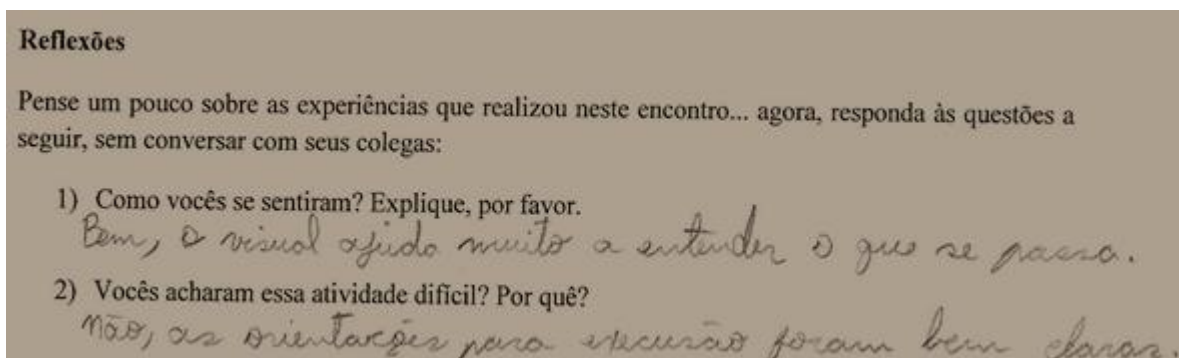 Reflexões
Pense um pouco sobre as experiências que realizou neste encontro... agora, responda às questões a
seguir, sem conversar com seus colegas:
1) Como vocês se sentiram? Explique, por favor.
Bem, o visual ajuda muito a entender o que se passa.
2) Vocês acharam essa atividade difícil? Por quê?
Não, as orientações para execusão foram bem claras.